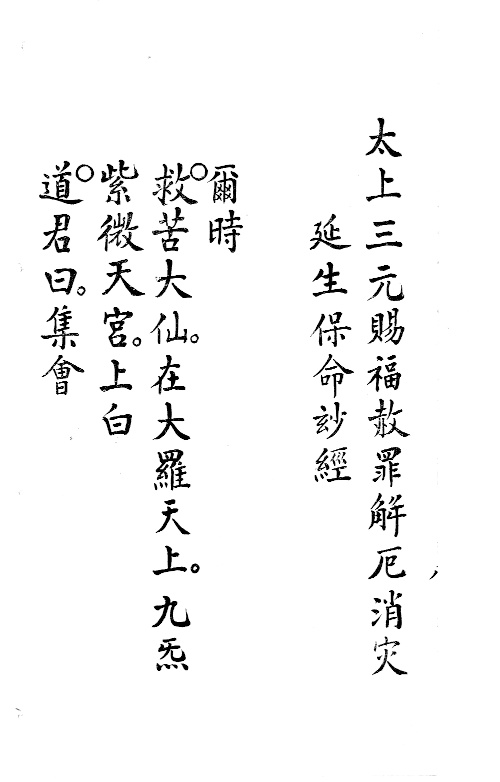 太上三元賜福赦罪解厄消灾
延生保命玅經
爾時
救苦大仙。在大羅天上。九炁
紫微天宮。上白
道君曰。集會